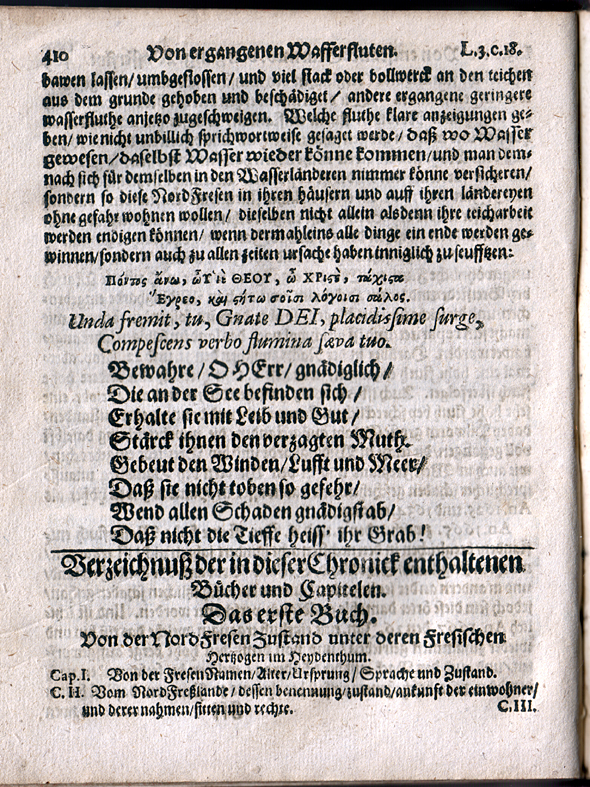 410 Von ergangenen Wasserfluten. L.3.c.18.
bawen lassen/ umbgestossen/ und viel stack oder bollwerck an den teichen
aus dem grunde gehoben und beschädiget/ andere ergangene geringere
wasserfluthe anjetzo zugeschweigen. Welche fluthe klare anzeigungen ge-
ben/ wie nicht unbillich sprichwortweise gesaget werde/ daß wo Wasser
gewesen/ daselbst Wasser wieder könne kommen/ und man dem-
nach sich für demselben in den Wasserländeren nimmer könne versicheren/
sondern so diese NordFresen in ihren häusern und auff ihren ländereyen
ohne gefahr wohnen wollen/ dieselben nicht allein alsdenn ihre teicharbeit
werden endigen können/ wenn dermahleins alle dinge ein ende werden ge-
winnen/ sondern auch zu allen zeiten ursache haben inniglich zu seufftzen:
Πόντος ἄνω, ὦ ΥΙῈ ΘΕΟΥ, ὦ ΧΡΙςὲ, τάχιςα
Ἔγρεο, καὶ ςήτω σοῖσι λόγοισι σάλος.
Unda fremit, tu, Gnate DEI, placidissime surge,
Compescens verbo flumina sæva tuo.
Bewahre/ O HErr/ gnädiglich/
Die an der See befinden sich/
Erhalte sie mit Leib und Gut/
Stärck ihnen den verzagten Muth.
Gebeut den Winden/ Lufft und Meer/
Daß sie nicht toben so gefehr/
Wend allen Schaden gnädigst ab/
Daß nicht die Tieffe heiss' ihr Grab!
Verzeichnuß der in dieser Chronick enthaltenen
Bücher und Capitelen.
Das erste Buch.
Von der NordFresen Zustand unter deren Fresischen
Hertzogen im Heydenthum.
Cap.I. Von der Fresen Namen/ Alter/ Ursprung/ Sprache und Zustand.
C. II. Vom NordFreßlande/ dessen benennung/ zustand/ ankunft der einwohner/
und derer nahmen/ sitten und rechte. C.III.